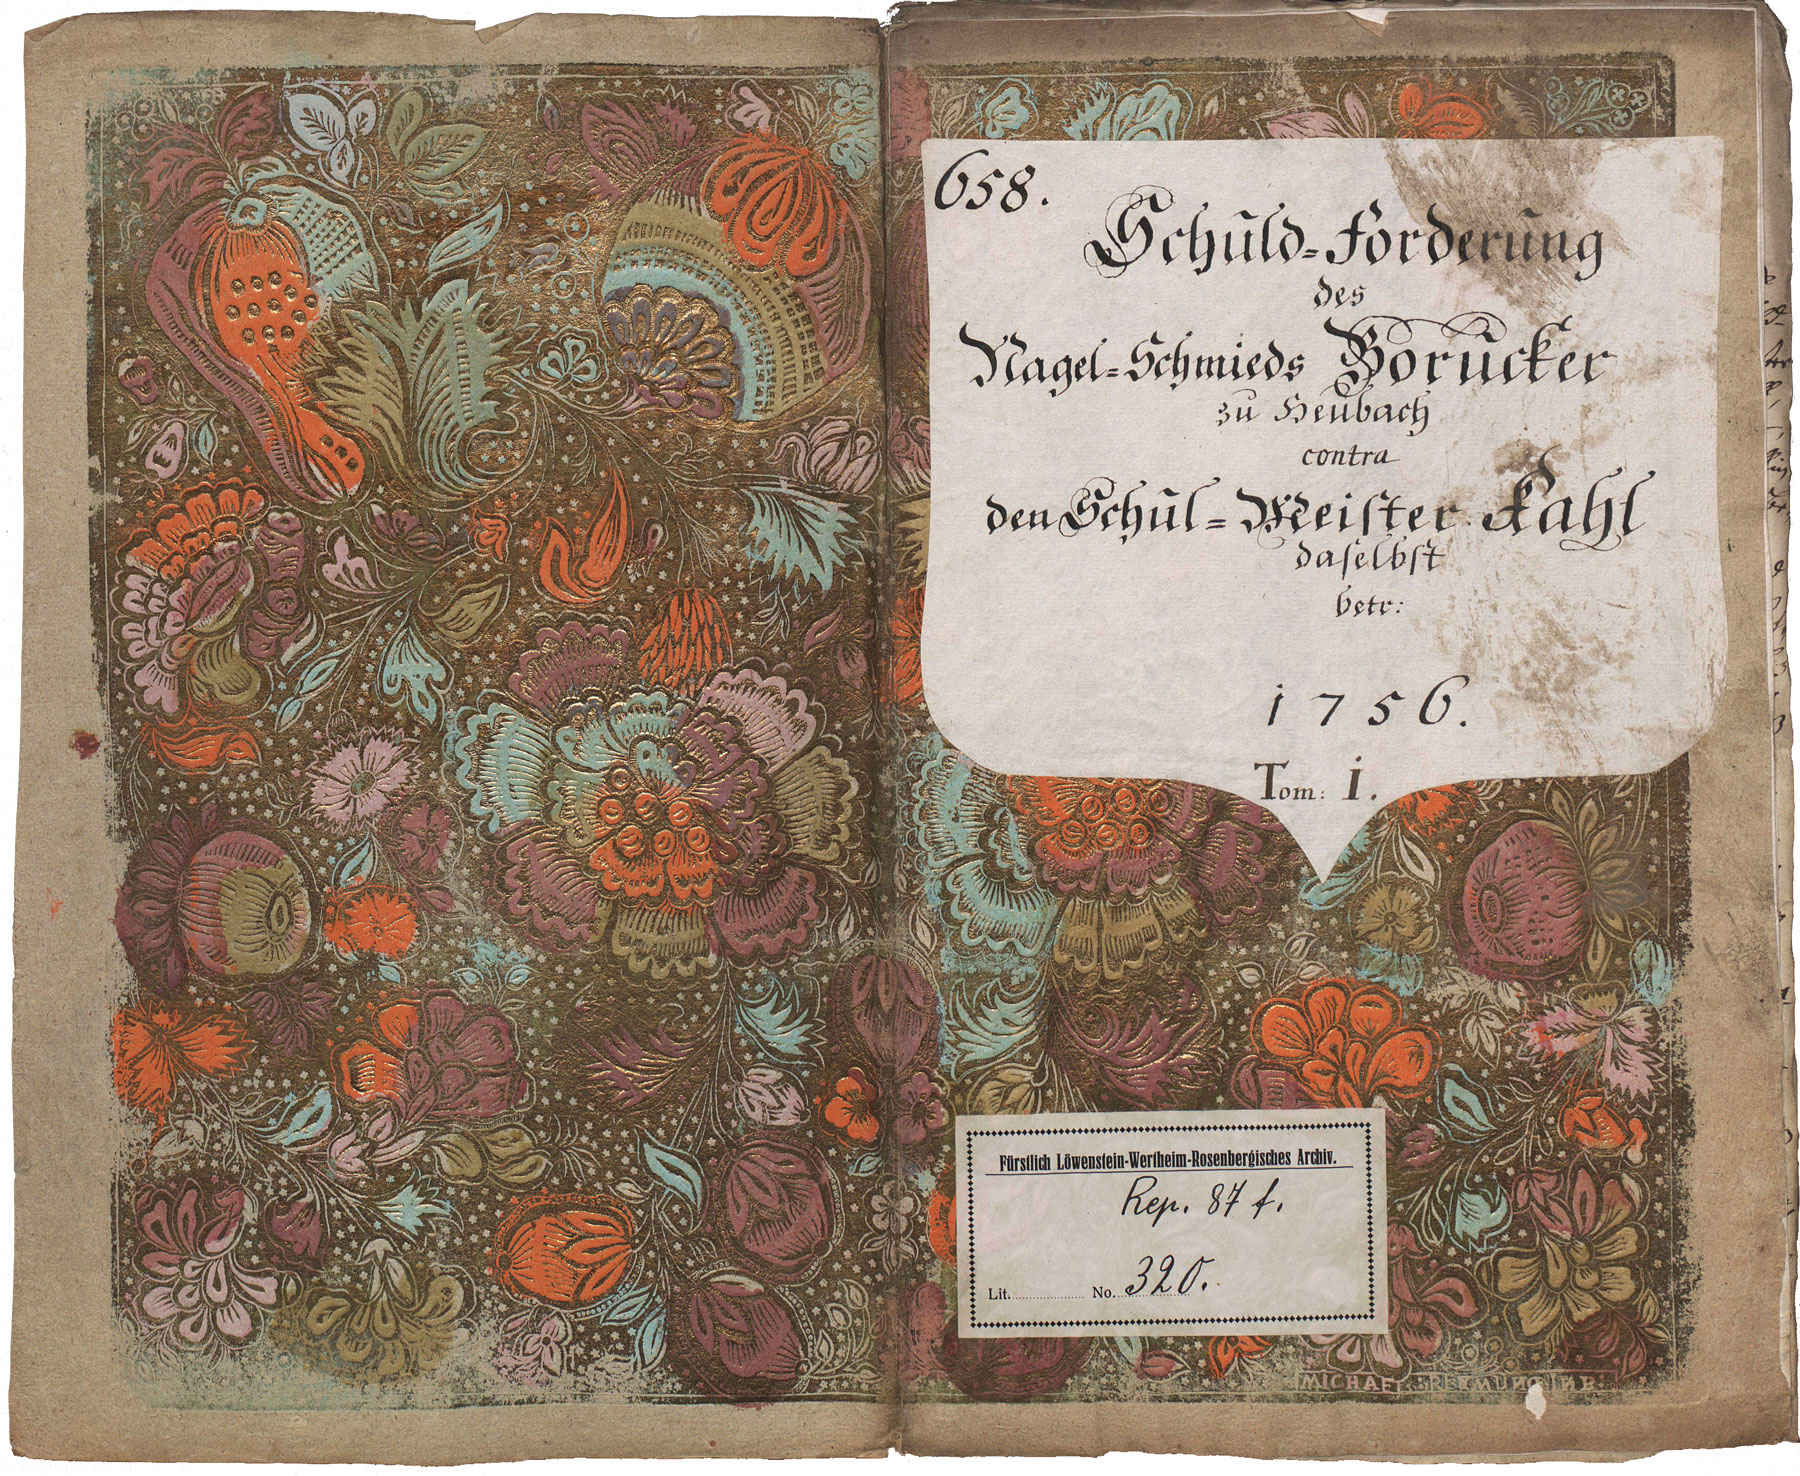 658.
Schuld=Forderung
des
Nagel=Schmieds Borucker
zu Heubach
contra
den Schul=Meister Kahl
daselbst
betr:
1756.
Tom: I.
Fürstlich Löwenstein-Wertheim-Rosenbergisches Archiv.
Rep. 87 f.
Lit. No. 320.
MICHAEL